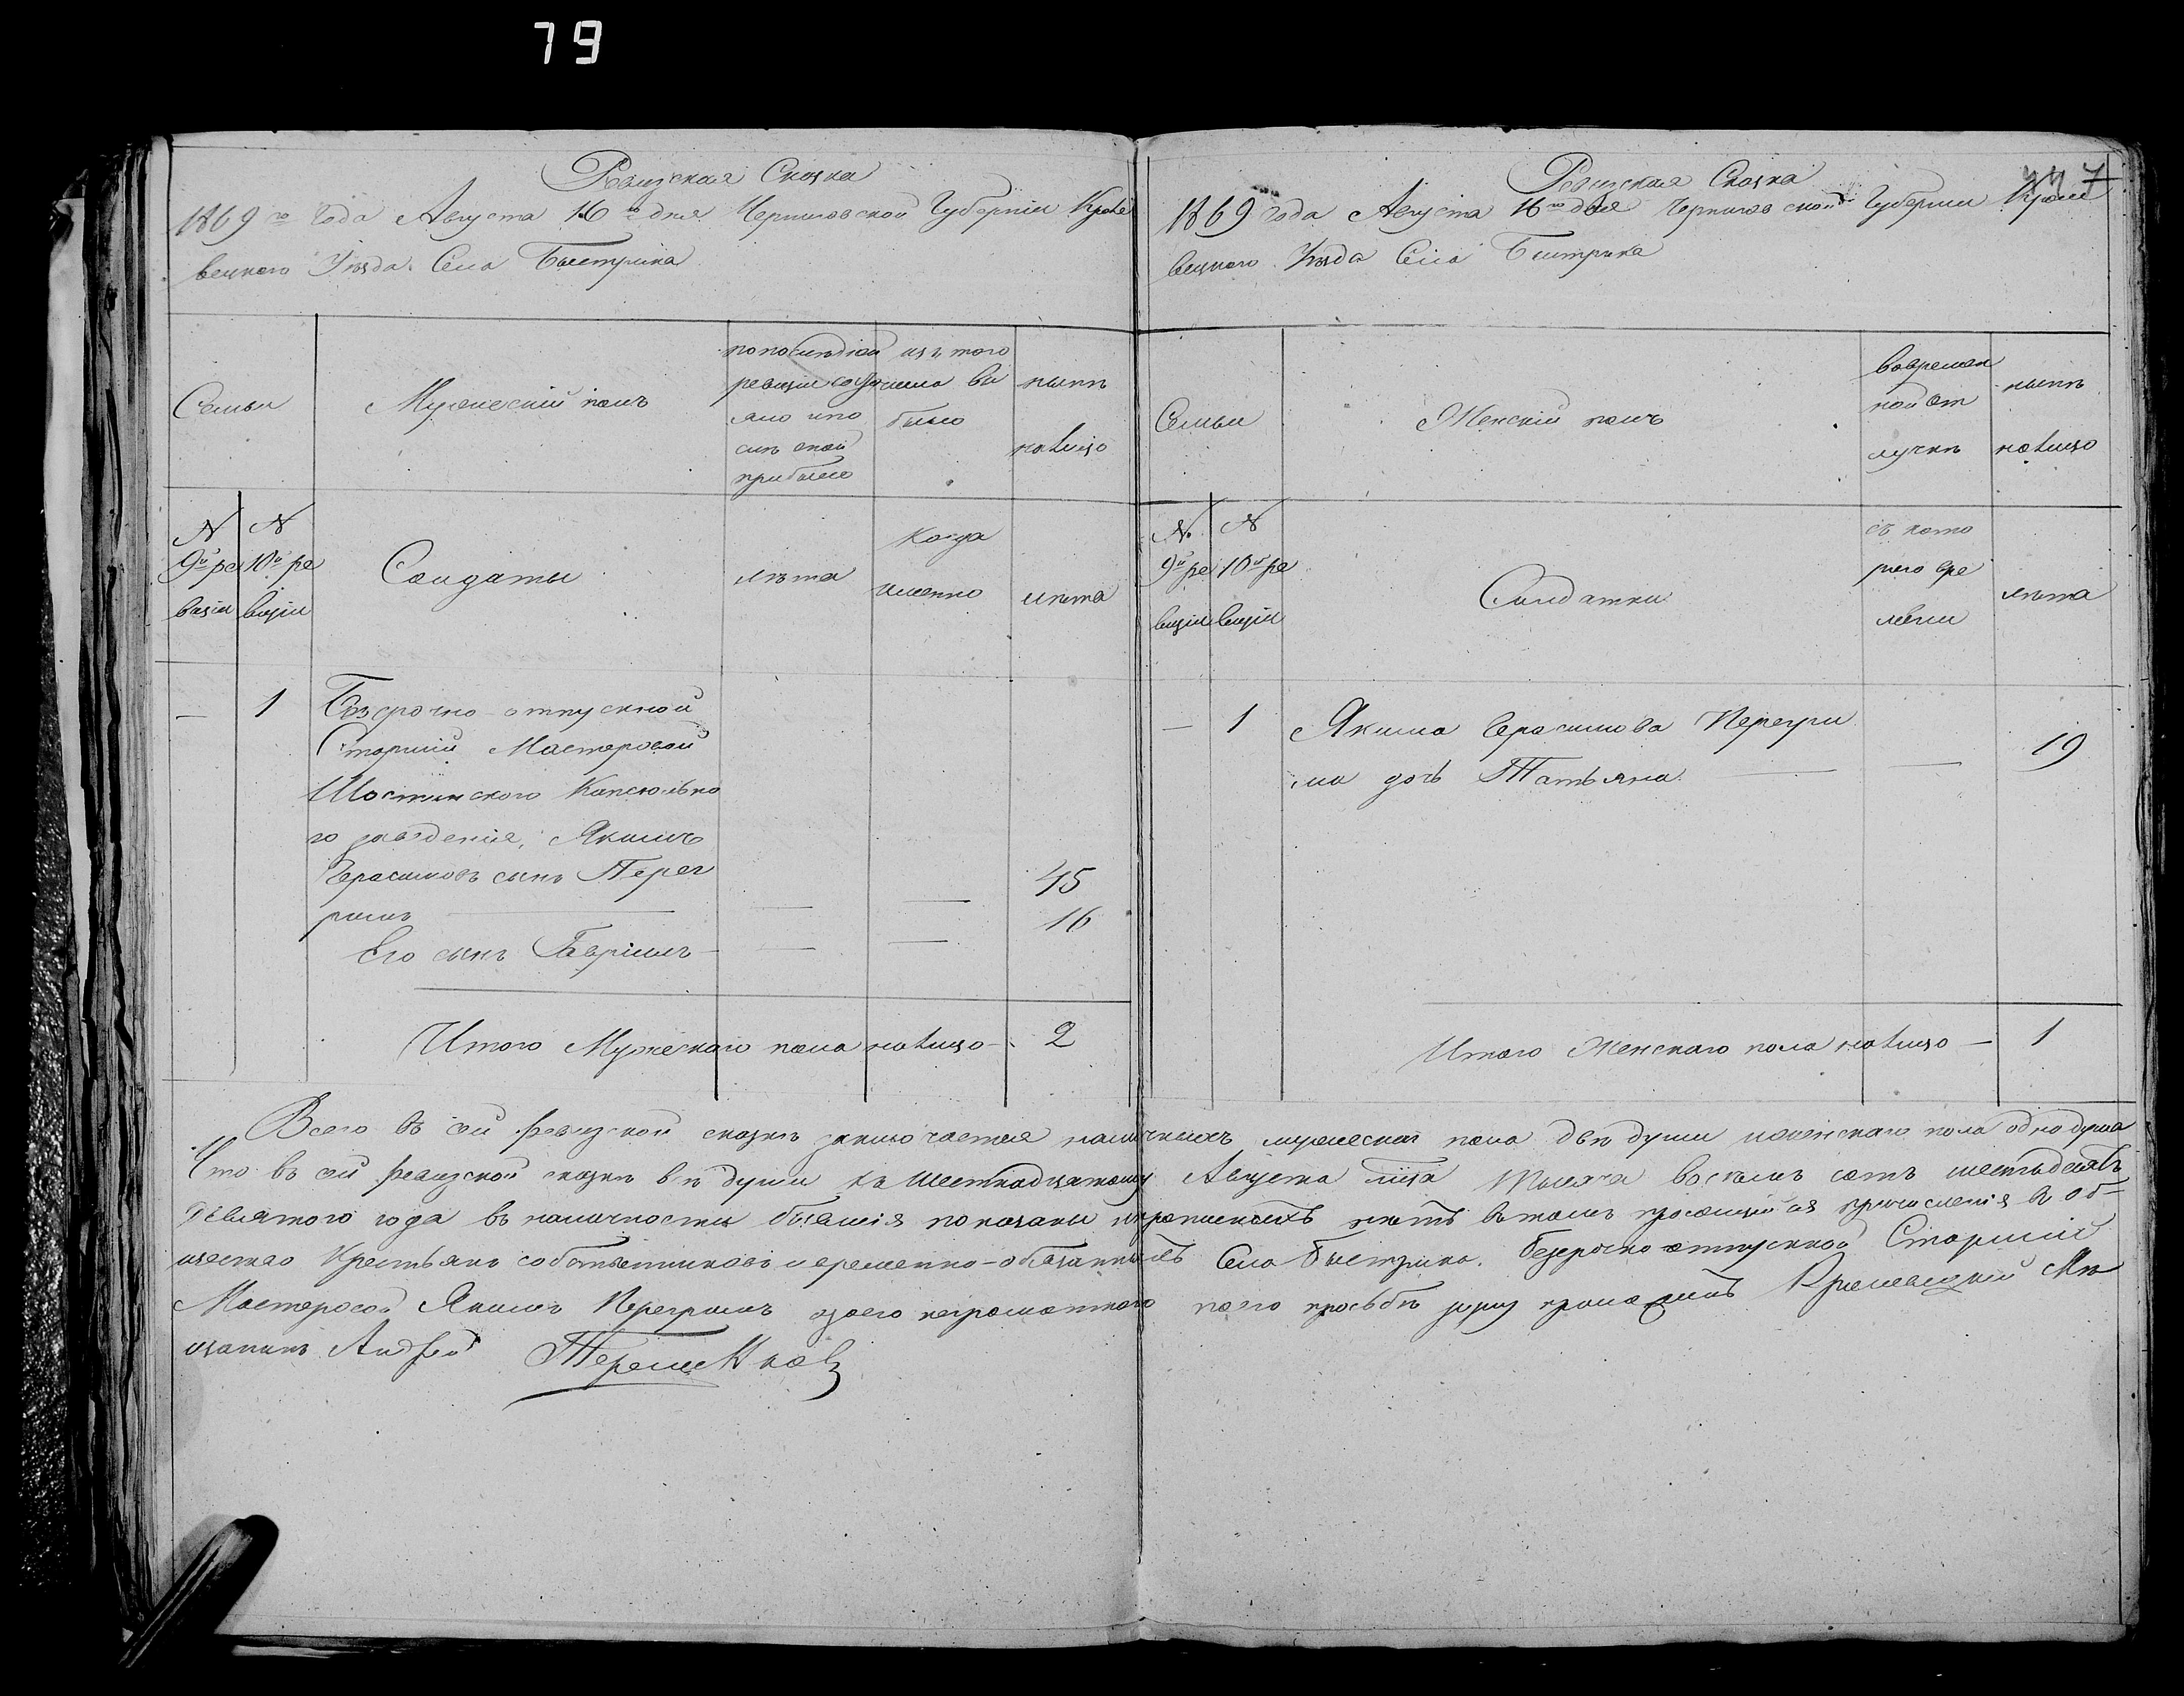 79
Ревизская Сказка
1869 го Года Августа 16 го дня Черниговской Губерніи Кроле
вецкаго Уѣзда. Села Быстрика
Семьи
Мужескій полъ
по послѣдней
ревизіи состо
яло и по
слѣ оной
прибыло
изъ того
числа вы
было
нынѣ
налицо
N N
9й ре 10й ре
визіи визіи
Солдаты
лѣта
когда
именно
лѣта
— 1 Безсрочно-отпускной
Старшій Мастеровой
Шостенского Капсюльна
го заведенія, Якимъ
Герасимовъ сынъ Перег
римъ — — — 45
Его сынъ Гавріилъ — — — 16
Итого Мужескаго пола налицо — 2
Ревизская Сказка
7
1869 года Августа 16 го дня Черниговской Губерніи Кроле
вецкаго Уѣзда Села Быстрика
Семьи
Женскій полъ
во времен
ной от
лучкѣ
нынѣ
налицо
N N
9й ре 10й ре
визіи визіи
Солдатки
съ кото
раго вре
мени
лѣта
— 1 Якима Герасимова Перегри
ма дочь Татьяна — — 19
Итого Женскаго пола налицо — 1
Всего въ сей ревизской сказкѣ заключается наличныхъ мужеска пола двѣ души и женскаго пола одна душа
Что въ сей ревизской сказкѣ всѣ души къ шестнадцатому Августа тысяча восемь сотъ шестьдесятъ
девятого года въ наличности бывшія показаны и прописныхъ нѣтъ въ томъ просящій ся причисленія въ об-
щество Крестьянъ собственниковъ временно-обязанныхъ Села Быстрика. Безсрочно отпускной Старшій
Мастеровой Якимъ Перегримъ а за его неграмотного по его прозьбѣ руку приложилъ Кролевецкій Мѣ
щанинъ Андрей